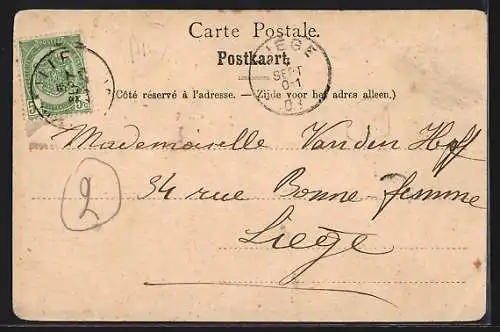 Carte Postale.
Postkaart.
(Côté réservé à l'adresse. – Zijde voor het adres alleen.)
LIÈGE
SEPT
0-1
Mademoiselle Van den Hoff
34 rue Bonne-femme
Liège
2